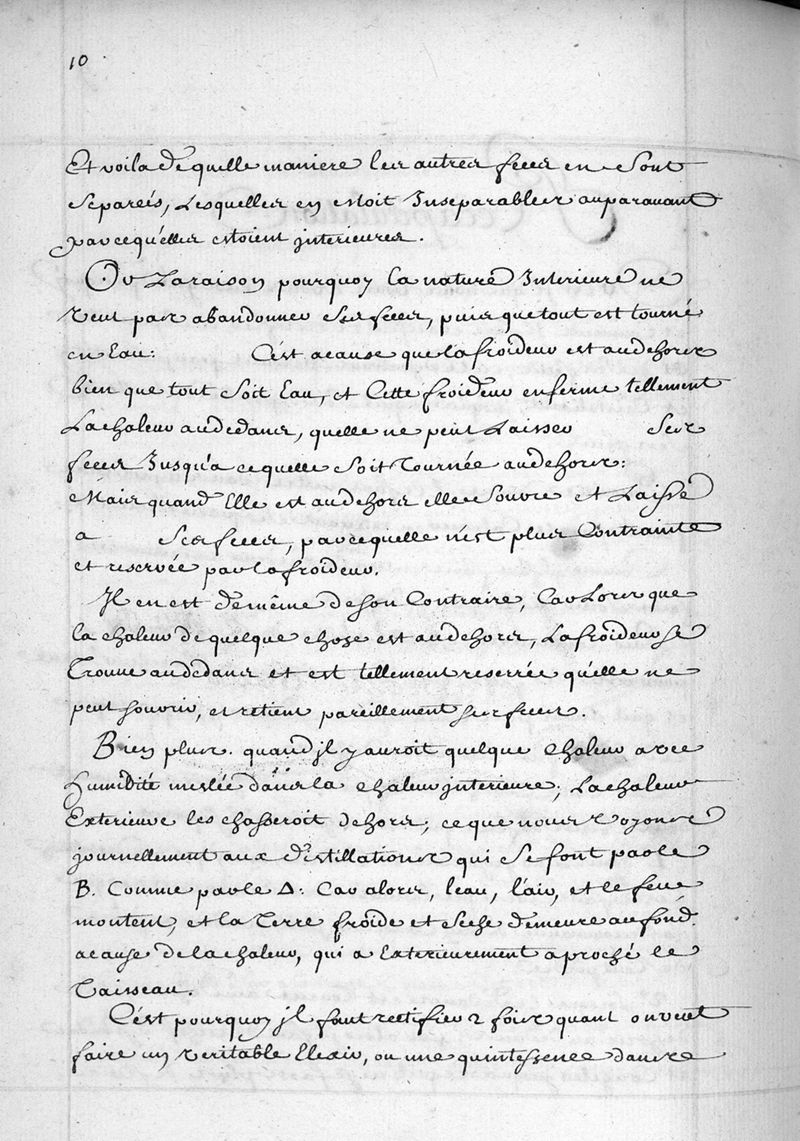 10
Et voila de quelle maniere les autres feces en sont
separeés, Lesquelles en étoit Inseparables auparavant
parcequ'elles estoient interieures.
Or La raison pourquoy la nature Interieure ne
veut pas abandonner ses feces, puis que tout est tourné
en Eau: C'est acause que la froideur est au dehors
bien que tout soit Eau, et Cette froideur enferme tellement
La chaleur au dedans, quelle ne peut Laisser ses
feces Jusqu'a ce quelle soit Tournée au dehors:
Mais quand Elle est au dehors elle souvre et Laisse
a ses feces, parcequelle n'est plus Contrainte
et reservée par la froideur.
Il en est de même de son Contraire, Car Lors que
la chaleur de quelque chose est au dehors, La froideur se
Trouve au dedans et est tellement reserrée qu'elle ne
peut souvrir, et retient pareillement ses feces.
Bien plus. quand il y auroit quelque chaleur avec
humidité meslée dans la chaleur interieure; La chaleur
Exterieure les chasseroit dehors; ce que nous voyons
journellement aux distillations qui se font par le
B. Comme par le Δ: Car alors, leau, l'air, et le feu
montent, et la Terre froide et seche demeure au fond.
acause de la chaleur, qui a Exterieurement aproché le
Vaisseau.
C'est pourquoy il faut rectifier 2 fois quant on veut
faire un veritable Elexir, ou une quintessence dautre